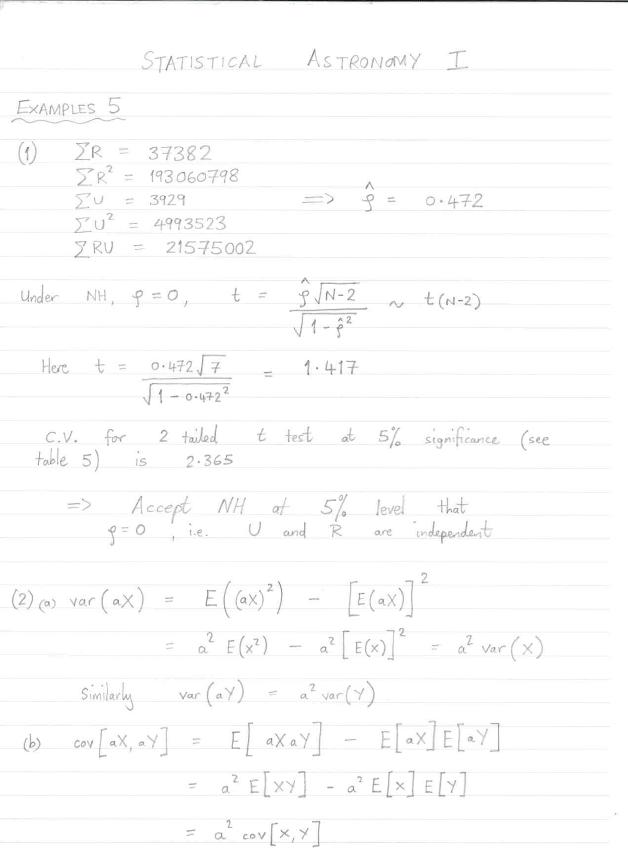 STATISTICAL ASTRONOMY I
EXAMPLES 5
(1) ΣR = 37382
ΣR² = 193060798
ΣU = 3929 => ρ̂ = 0.472
ΣU² = 4993523
ΣRU = 21575002
Under NH, ρ = 0, t = ρ̂√(N-2) / √(1-ρ̂²) ~ t(N-2)
Here t = 0.472√7 / √(1 - 0.472²) = 1.417
C.V. for 2 tailed t test at 5% significance (see
table 5) is 2.365
=> Accept NH at 5% level that
ρ=0, i.e. U and R are independent
(2)(a) var(aX) = E((aX)²) - [E(aX)]²
= a² E(X²) - a² [E(X)]² = a² var(X)
Similarly var(aY) = a² var(Y)
(b) cov[aX, aY] = E[aXaY] - E[aX]E[aY]
= a² E[XY] - a² E[X] E[Y]
= a² cov[X,Y]